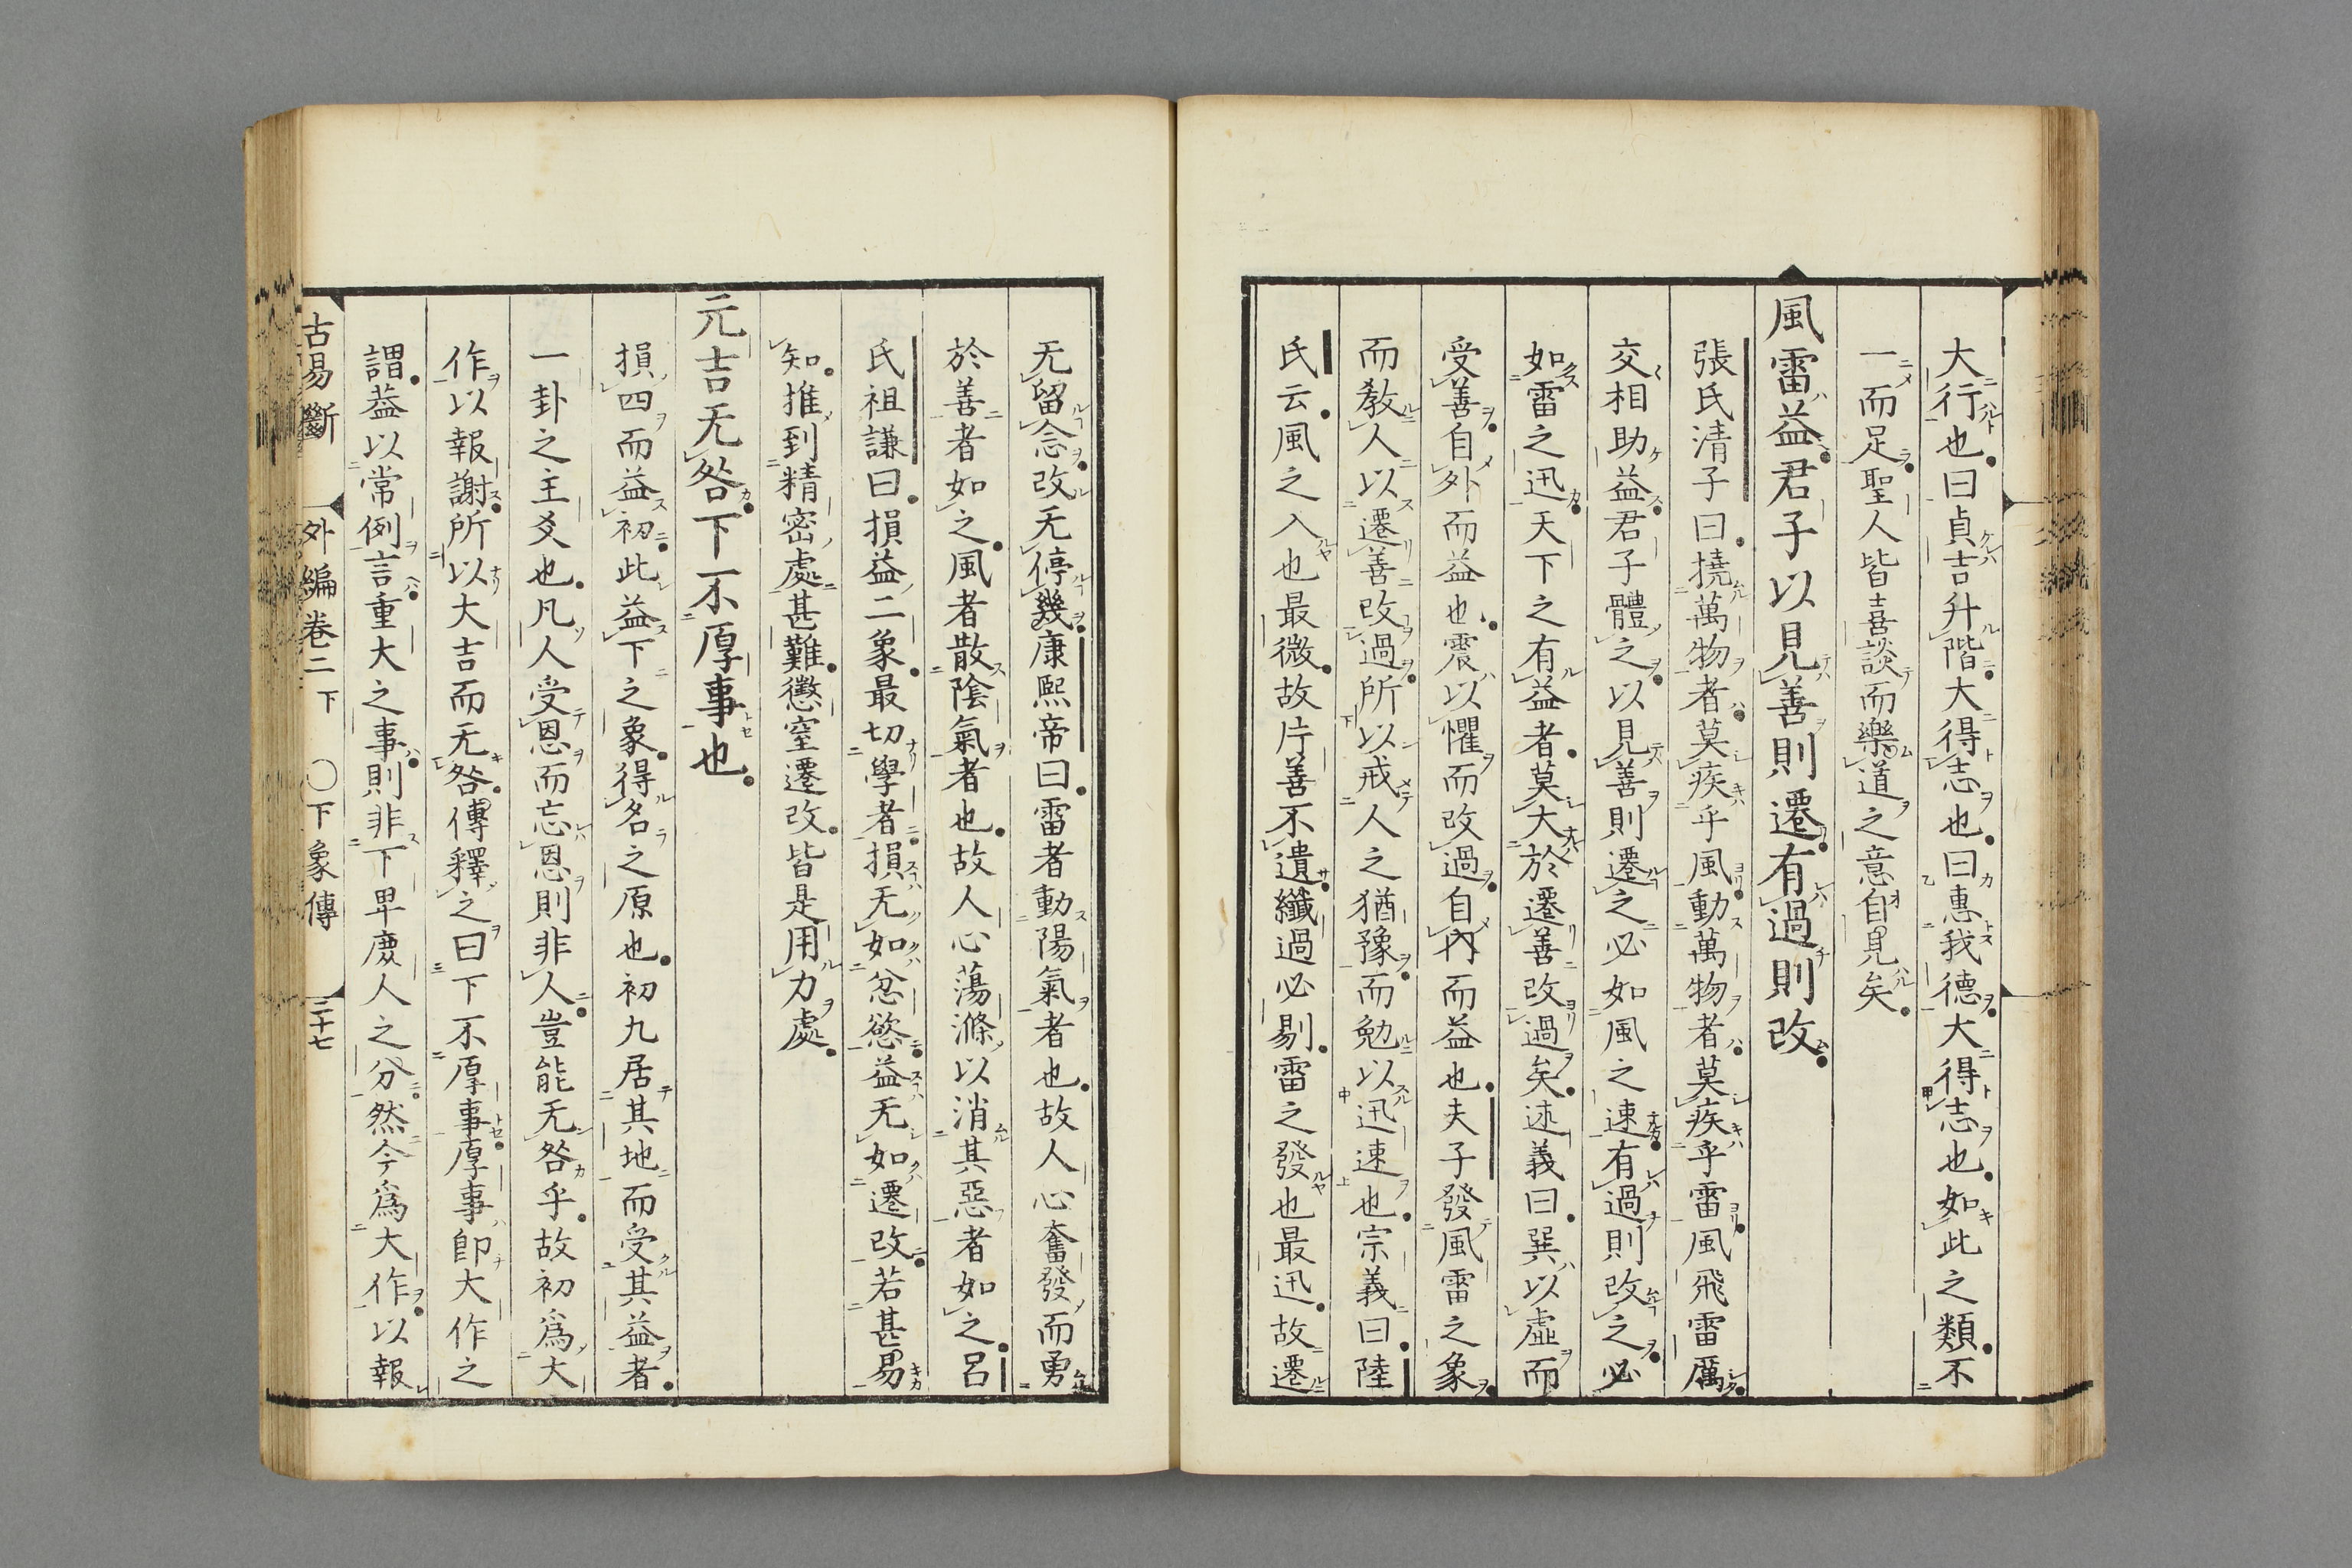 大行也曰貞吉升階大得志也曰惠我德大得志也如此之類不
一而足聖人皆喜談而樂道之意自見矣
風雷益君子以見善則遷有過則改
張氏清子曰撓萬物者莫疾乎風動萬物者莫疾乎雷風飛雷厲
交相助益君子體之以見善則遷之必如風之速有過則改之必
如雷之迅天下之有益者莫大於遷善改過矣述義曰巽以虛而
受善自外而益也震以懼而改過自內而益也夫子發風雷之象
而教人以遷善改過所以戒人之猶豫而勉以迅速也宗義曰陸
氏云風之入也最微故片善不遺纖過必剔雷之發也最迅故遷
无留念改无停幾康熙帝曰雷者動陽氣者也故人心奮發而勇
於善者如之風者散陰氣者也故人心蕩滌以消其惡者如之呂
氏祖謙曰損益二象最切學者損无如忿慾益无如遷改若甚易
知推到精密處甚難懲窒遷改皆是用力處
元吉无咎下不厚事也
損四而益初此益下之象得名之原也初九居其地而受其益者
一卦之主爻也凡人受恩而忘恩則非人豈能无咎乎故初爲大
作以報謝所以大吉而无咎傳釋之曰下不厚事厚事卽大作之
謂葢以常例言重大之事則非下卑庻人之分然今爲大作以報
古易斷 外編卷二下 〇下象傳 三十七